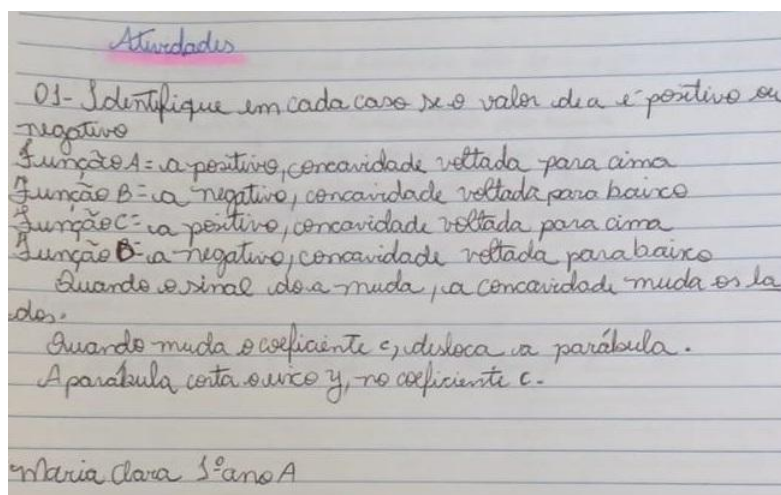 Atividades
01- Identifique em cada caso se o valor de a é positivo ou
negativo
Função A = a positivo, concavidade voltada para cima
Função B = a negativo, concavidade voltada para baixo
Função C = a positivo, concavidade voltada para cima
Função D = a negativo, concavidade voltada para baixo
Quando o sinal do a muda, a concavidade muda os la
dos.
Quando muda o coeficiente c, desloca a parábula.
A parábula corta o eixo y, no coeficiente c.
Maria Clara 1º ano A